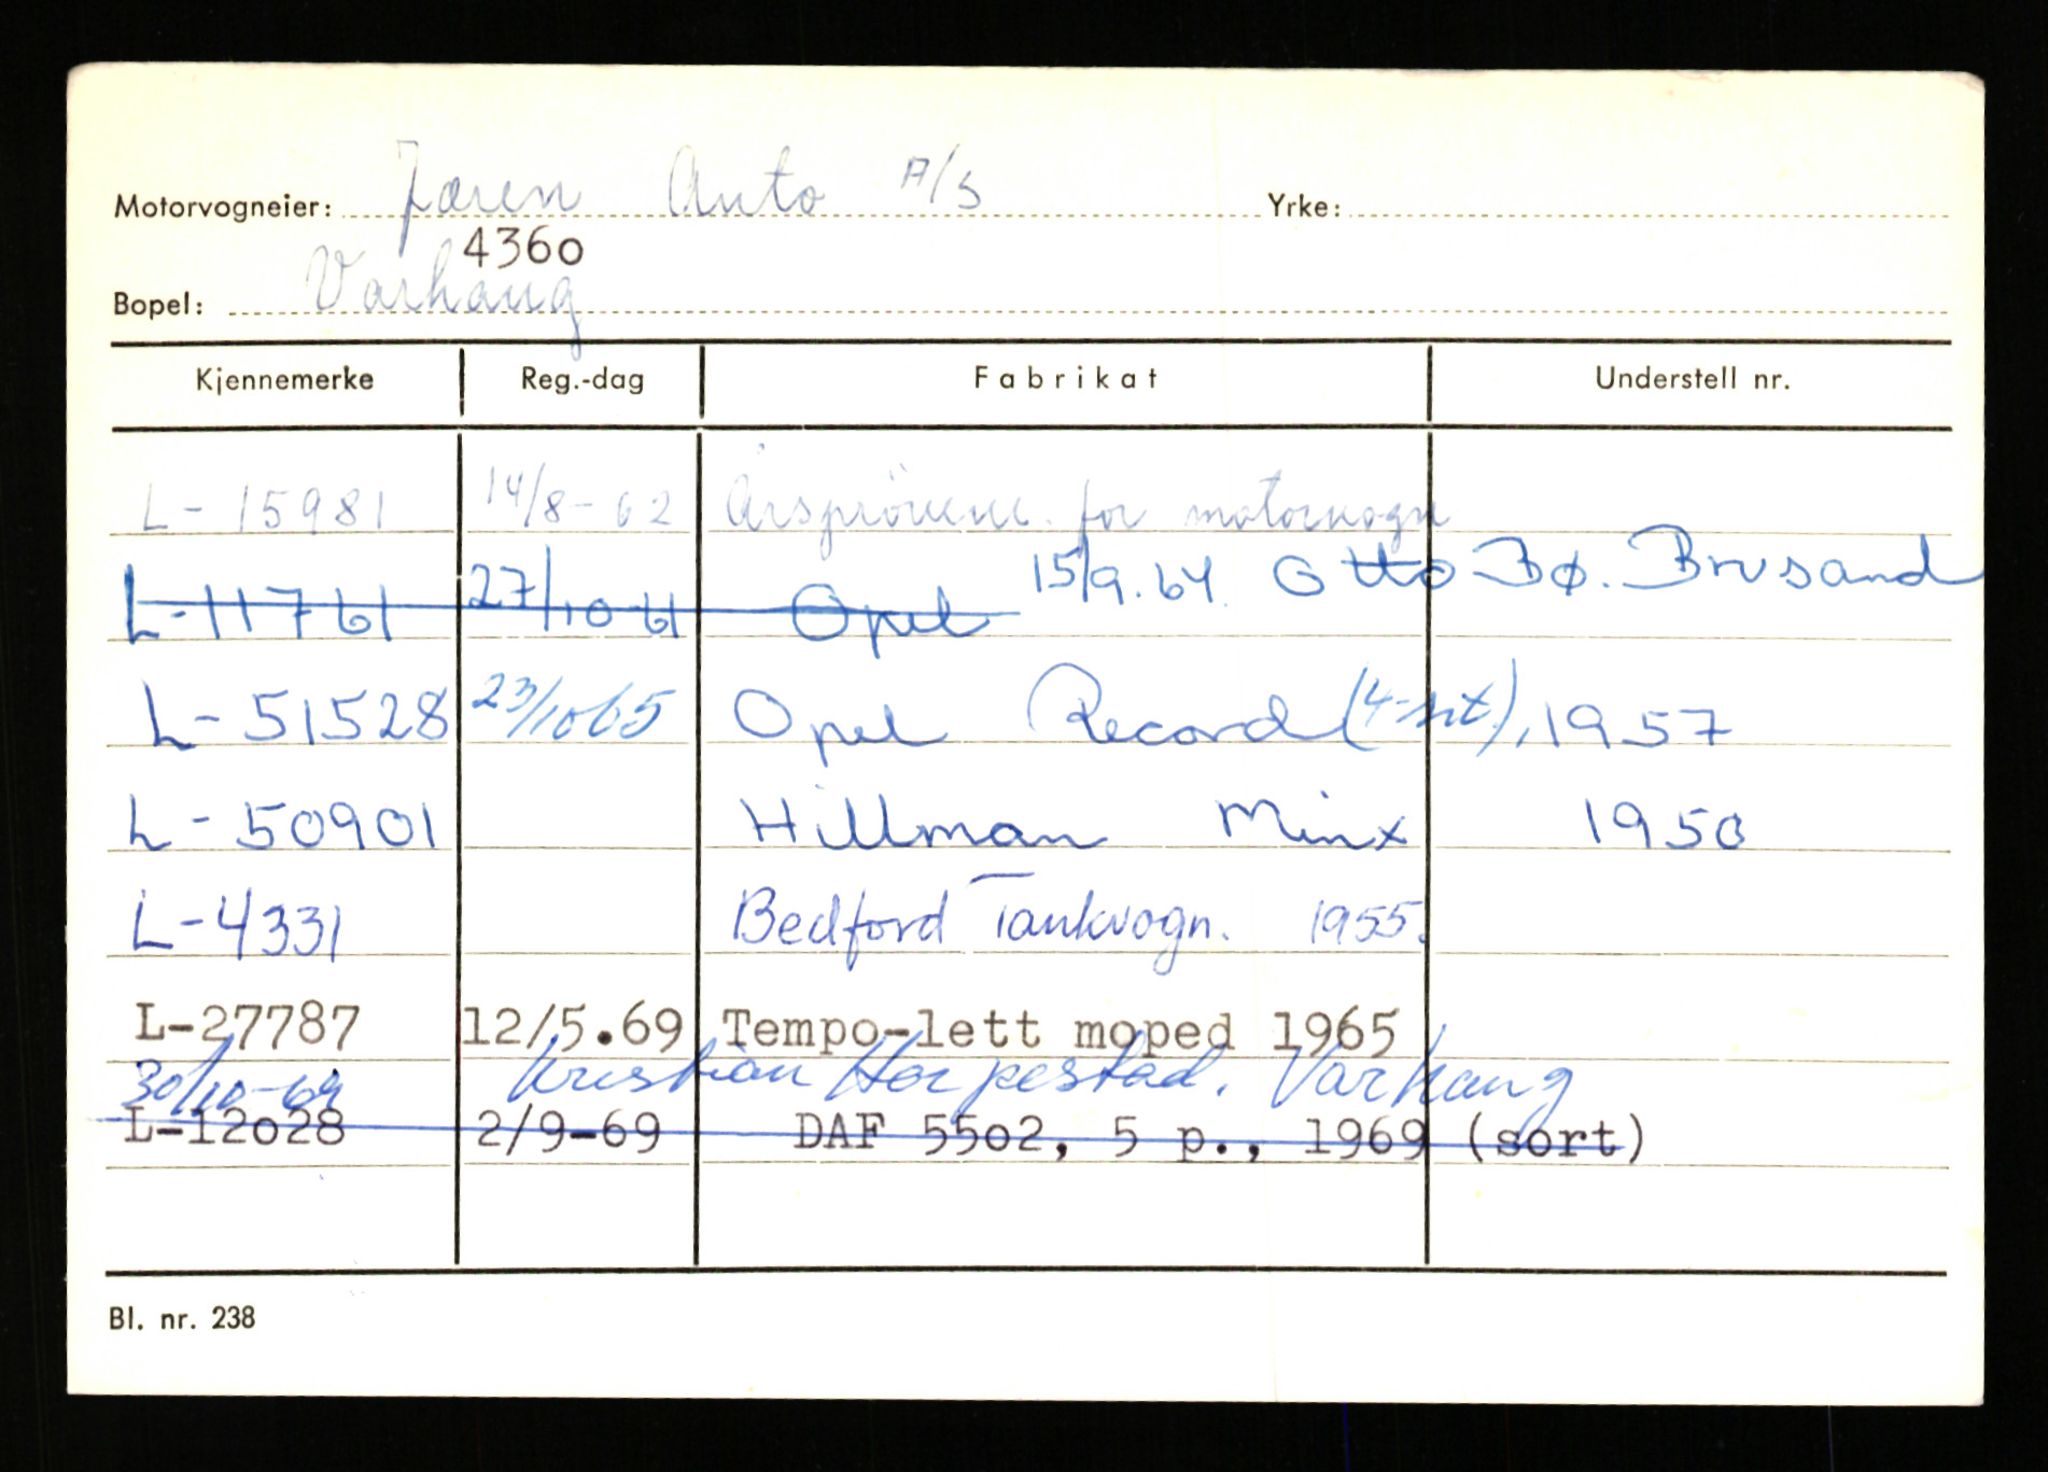 Motorvogneier: Jæren Auto A/S Yrke:
4360
Bopel: Varhaug
Kjennemerke Reg.-dag Fabrikat Understell nr.
L-15981 14/8-62 for motorvogn
L-11761 27/10-61 Opel 15/9.64. Otto Bø. Brusand
L-51528 23/10 65 Opel Record (4-sit), 1957
L-50901 Hillman Minx 1950
L-4331 Bedford Tankvogn. 1955.
L-27787 12/5.69 Tempo-lett moped 1965
30/10-69 Kristian Herpestad. Varhaug
L-12o28 2/9-69 DAF 55o2, 5 p., 1969 (sort)
Bl. nr. 238